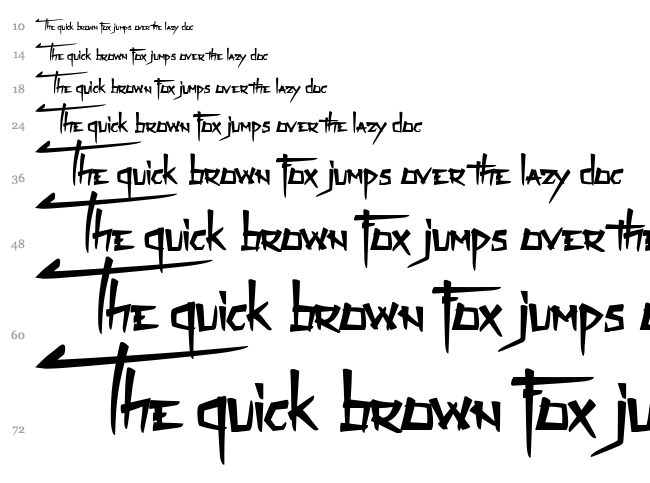 10 The quick brown fox jumps over the lazy doc
14 The quick brown fox jumps over the lazy doc
18 The quick brown fox jumps over the lazy doc
24 The quick brown fox jumps over the lazy doc
36 The quick brown fox jumps over the lazy doc
48 The quick brown fox jumps over the
60 The quick brown fox jumps
72 The quick brown fox ju